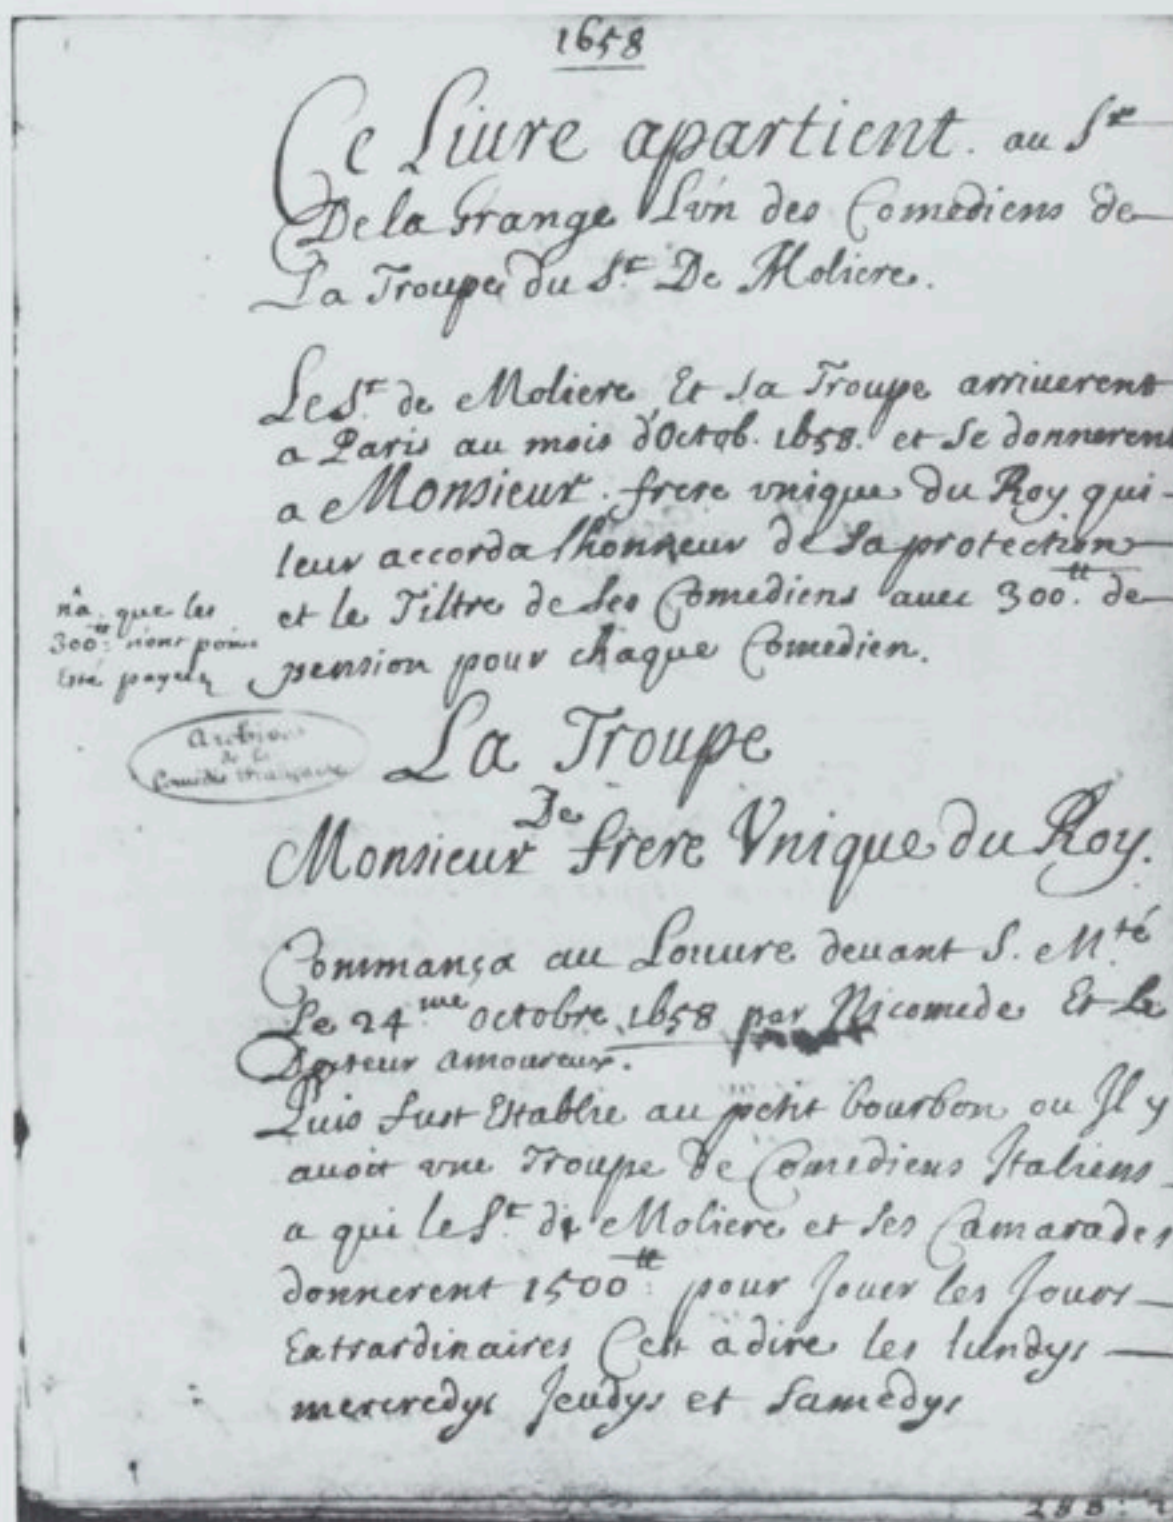 1658
Ce Liure apartient. au Sr
De la Grange L'vn des Comediens de
La Troupe du Sr. De Moliere.
Le Sr. de Moliere Et sa Troupe arriuerent
a Paris au mois d'Octob. 1658. et se donnerent
a Monsieur. frere vnique du Roy qui
leur accorda lhonneur de sa protection
et le Tiltre de ses Comediens auec 300tt. de
pension pour chaque Comedien.
na. que les
300tt. n'ont point
Esté payées
Archives
de la
Comédie Française
La Troupe
De
Monsieur frere Vnique du Roy.
Commança au Louure deuant S. Mté
Le 24me octobre 1658 par Nicomede Et Le
Docteur amoureux.
Puis fust Establie au petit bourbon ou Il y
auoit vne Troupe de Comediens Italiens
a qui le Sr. de Moliere et ses Camarades
donnerent 1500tt. pour Jouer les Jours
Extrardinaires Cest a dire les lundys
mercredys Jeudys et samedys